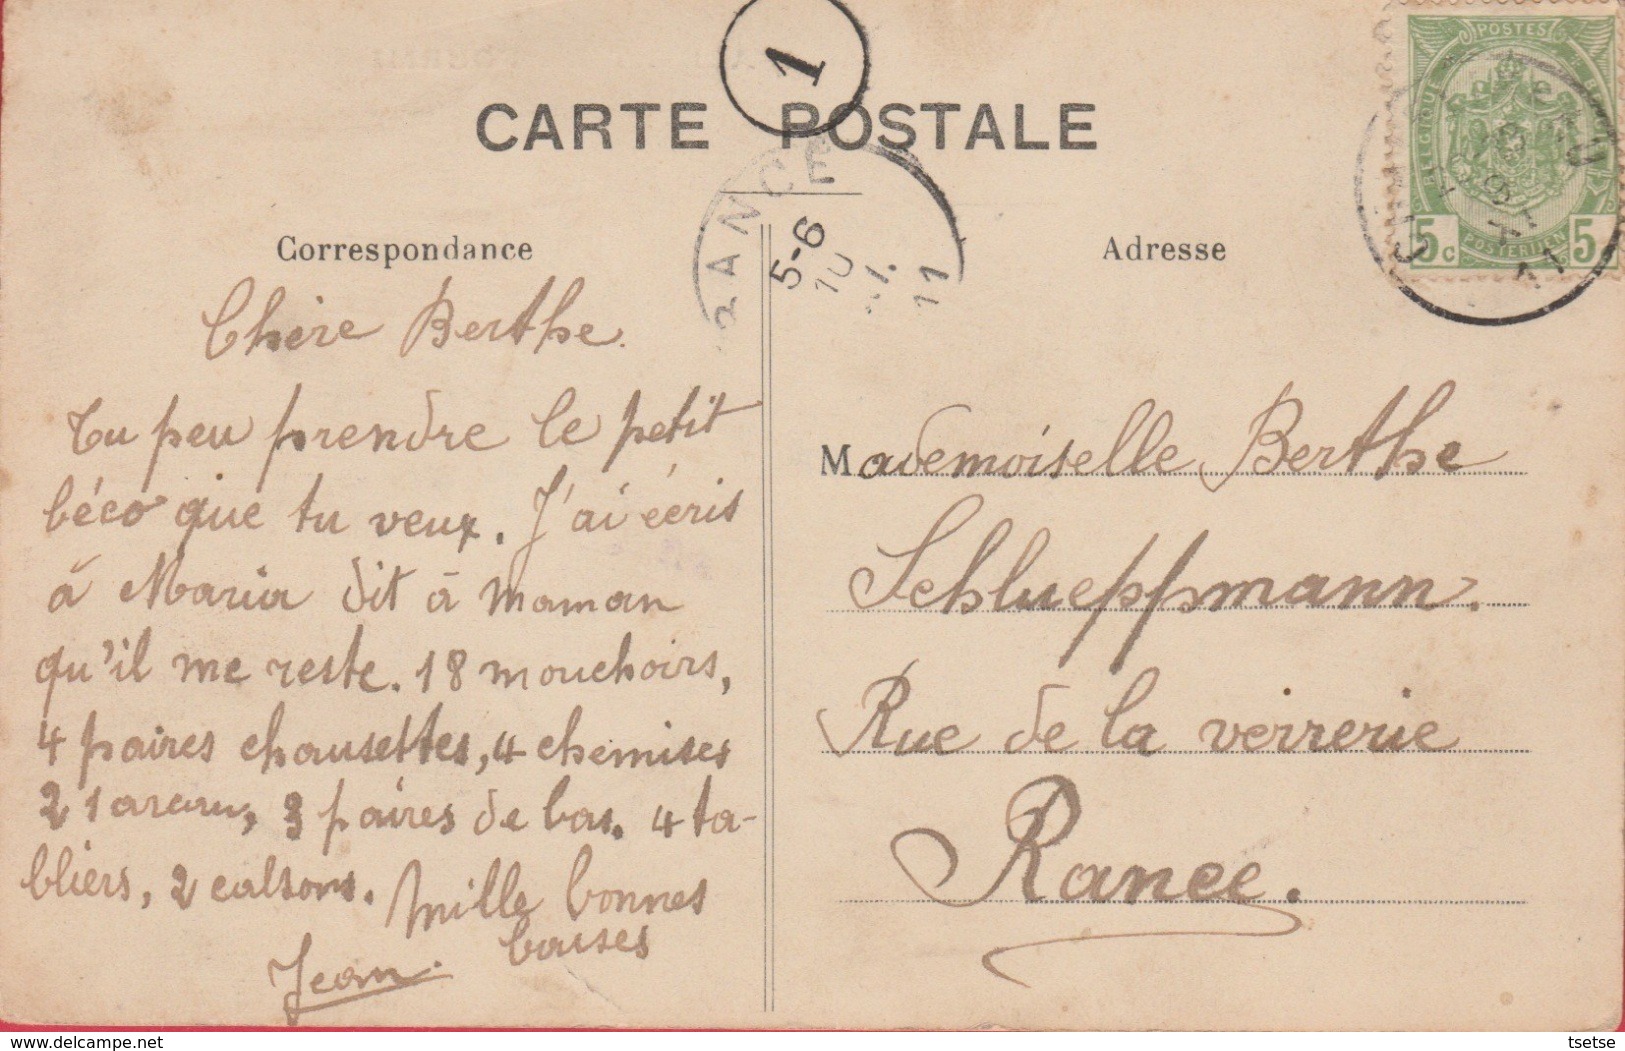 1
CARTE POSTALE
Correspondance
Adresse
RANCE
5-6
10
11
POSTES
BELGIQUE
POSTERIJEN
5c 5c
11
Chère Berthe.
Tu peu prendre le petit
béco que tu veux. J'ai écris
à Maria dit à maman
qu'il me reste. 18 mouchoirs,
4 paires chausettes, 4 chemises
2 3 paires de bas. 4 ta-
bliers, 2 calsons. Mille bonnes
baises
Jean.
Mademoiselle Berthe
Schlueppmann.
Rue de la verrerie
Rance.
delcampe.net
tsetse